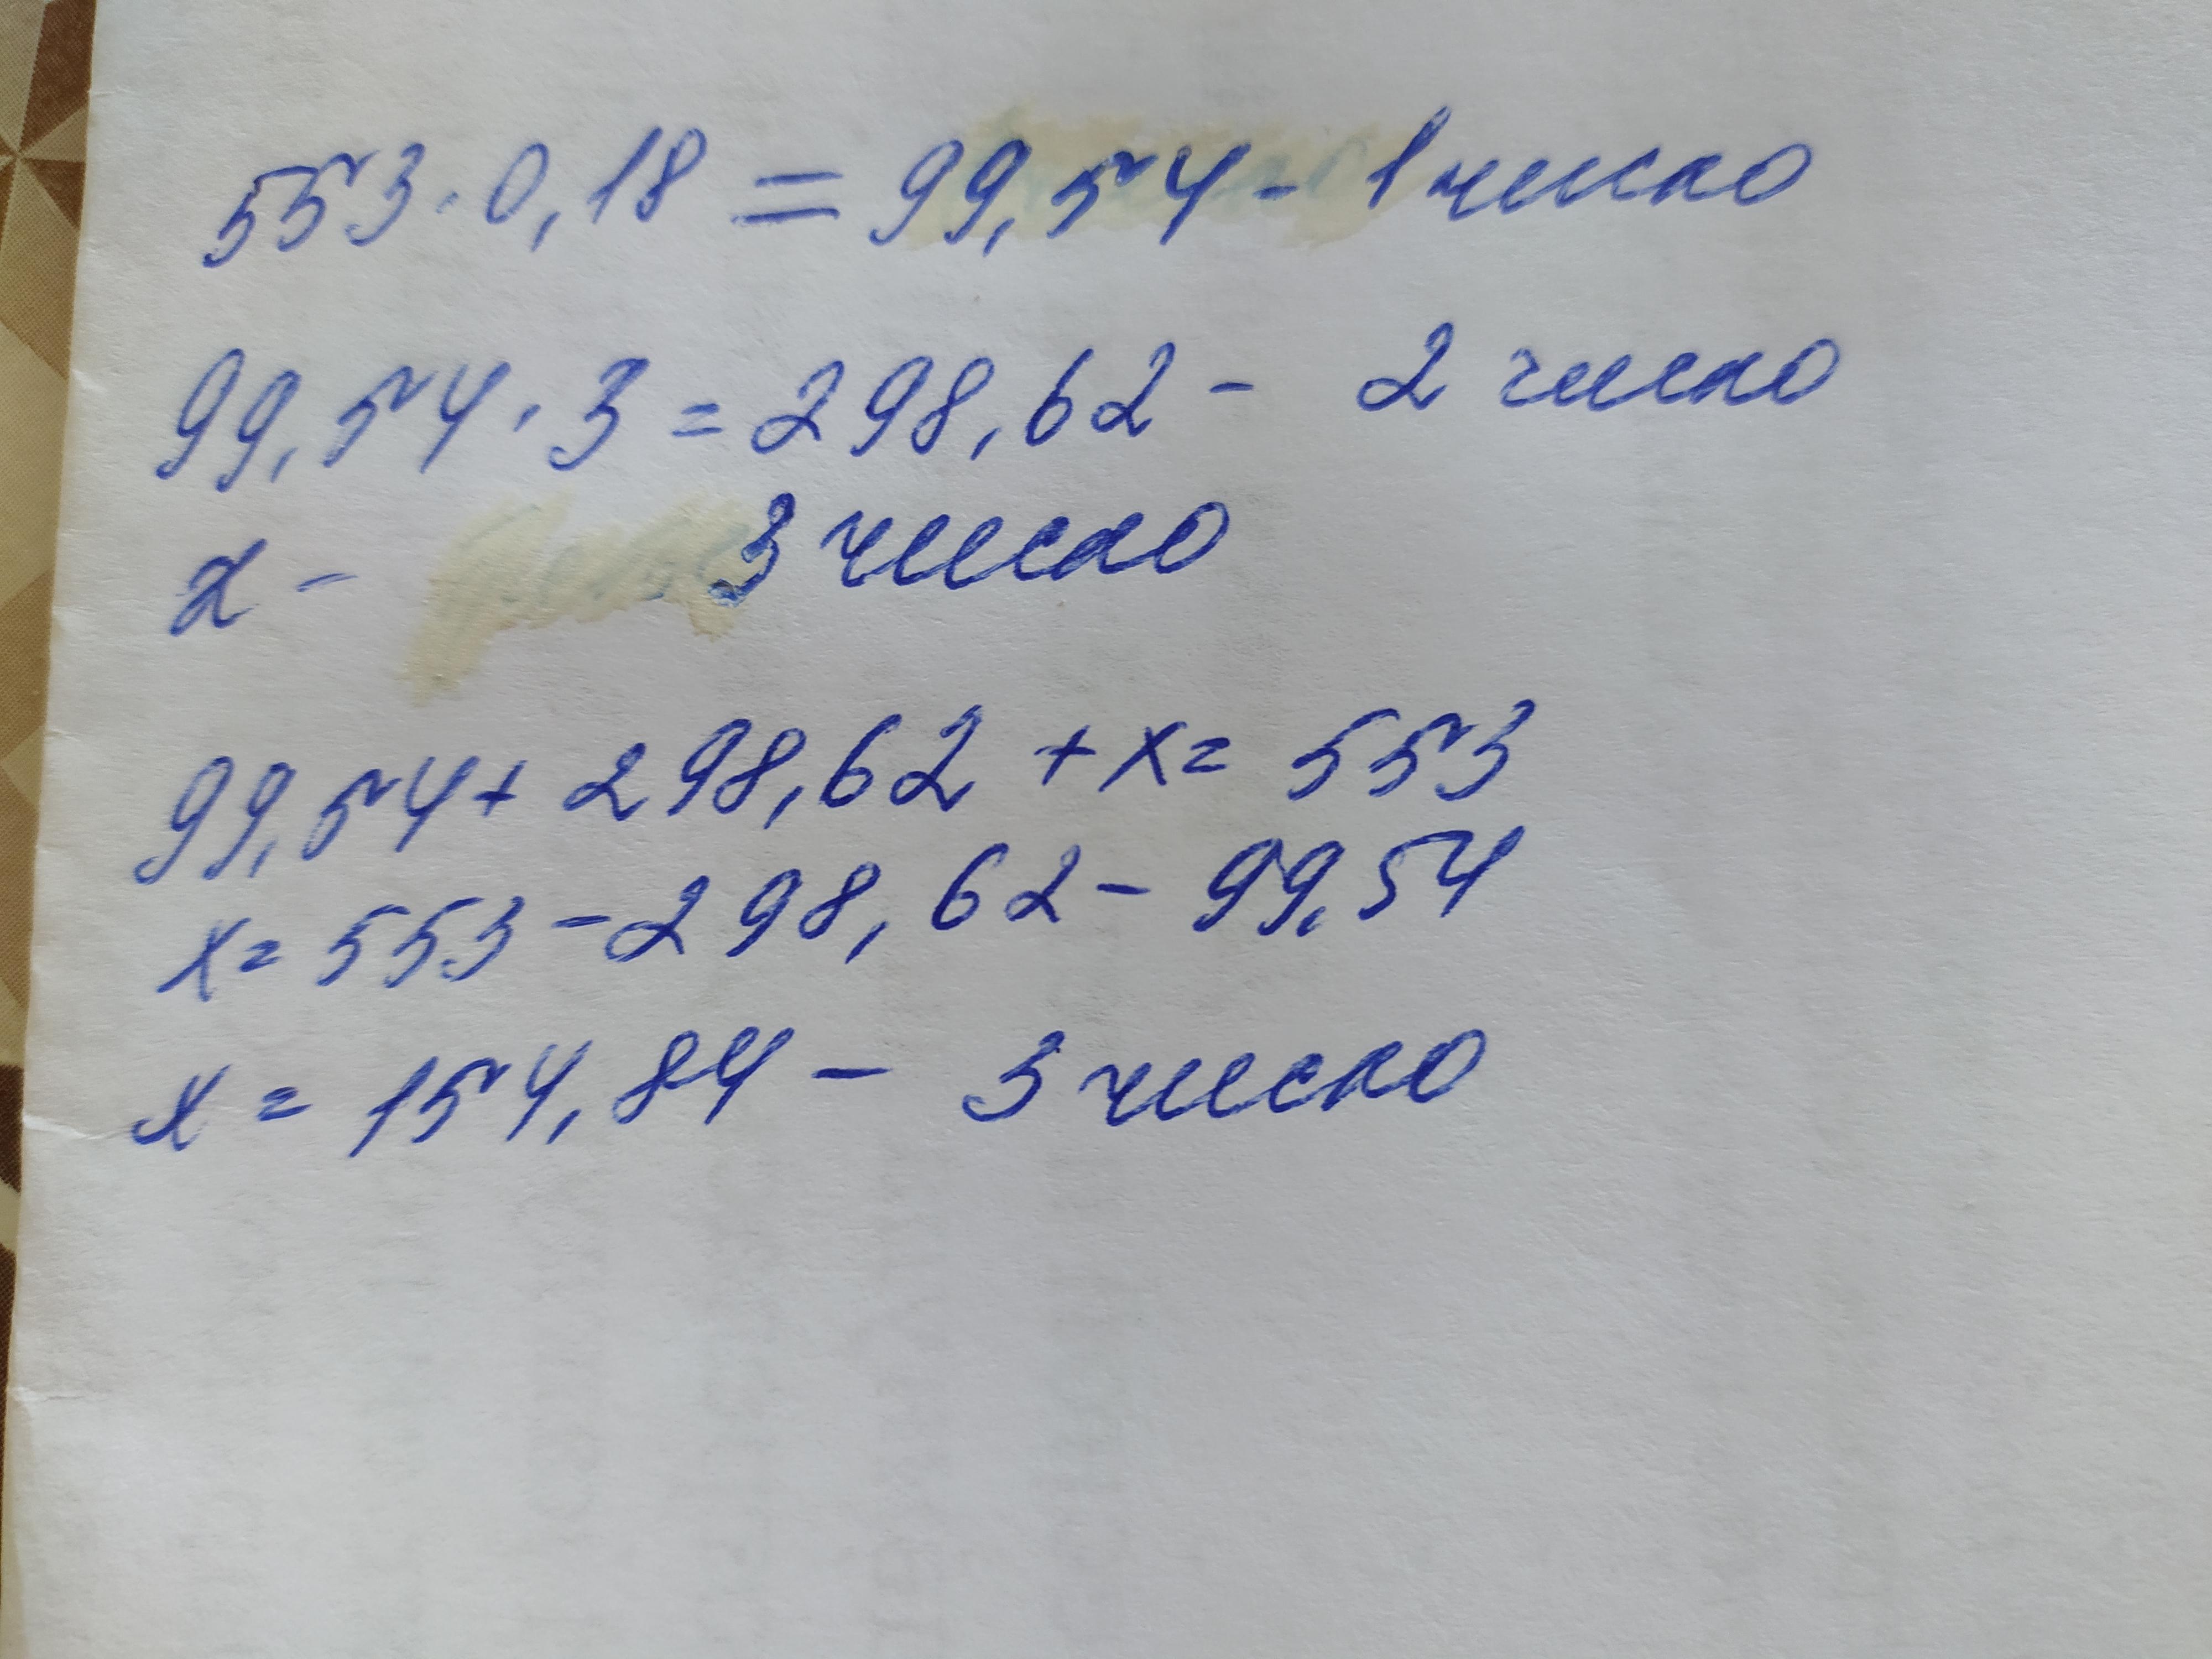 553·0,18=99,54-1 число
99,54·3=298,62- 2 число
x - 3 число
99,54+298,62+x=553
x=553-298,62-99,54
x=154,84- 3 число